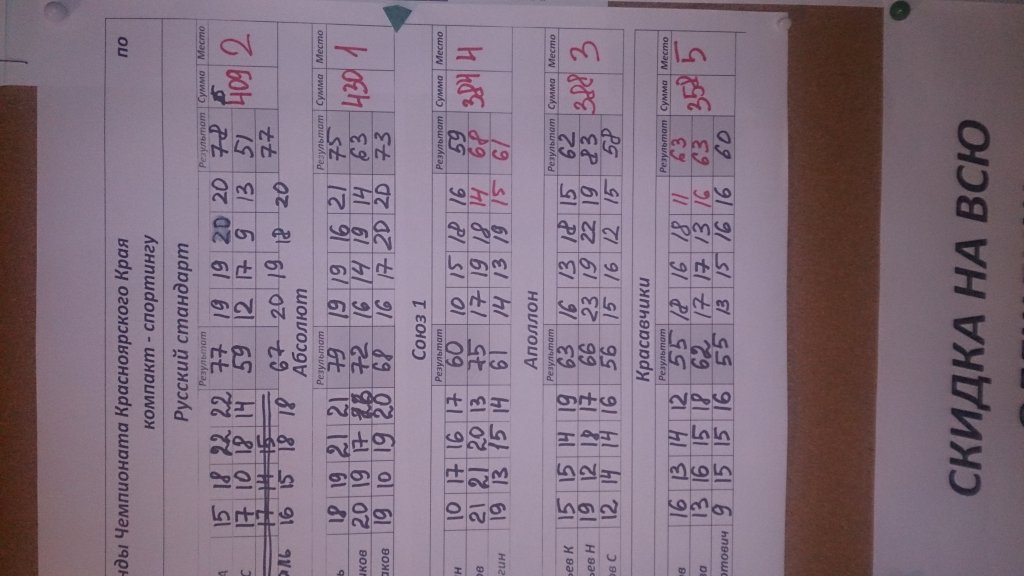 нды Чемпионата Красноярского Края по
компакт - спортингу
Русский стандарт
Результат Результат Сумма Место
15 18 22 22 77 19 19 20 20 78 409 2
с 17 10 18 14 59 12 17 9 13 51
17 14 15
16 15 18 18 67 20 19 18 20 77
Абсолют
Результат Результат Сумма Место
ь 18 19 21 21 79 19 19 16 21 75 430 1
иков 20 19 17 72 16 14 19 14 63
аков 19 10 19 20 68 16 17 20 20 73
Союз 1
Результат Результат Сумма Место
н 10 17 16 17 60 10 15 18 16 59 384 4
ов 21 21 20 13 75 17 19 18 14 68
гин 19 13 15 14 61 14 13 19 15 61
Аполлон
Результат Результат Сумма Место
ьев К 15 15 14 19 63 16 13 18 15 62 388 3
ьев Н 19 12 18 17 66 23 19 22 19 83
ов С 12 14 14 16 56 15 16 12 15 58
Красавчики
Результат Результат Сумма Место
ов 16 13 14 12 55 18 16 18 11 63 358 5
ва 13 16 15 18 62 17 17 13 16 63
ртович 9 15 15 16 55 13 15 16 16 60
СКИДКА НА ВСЮ